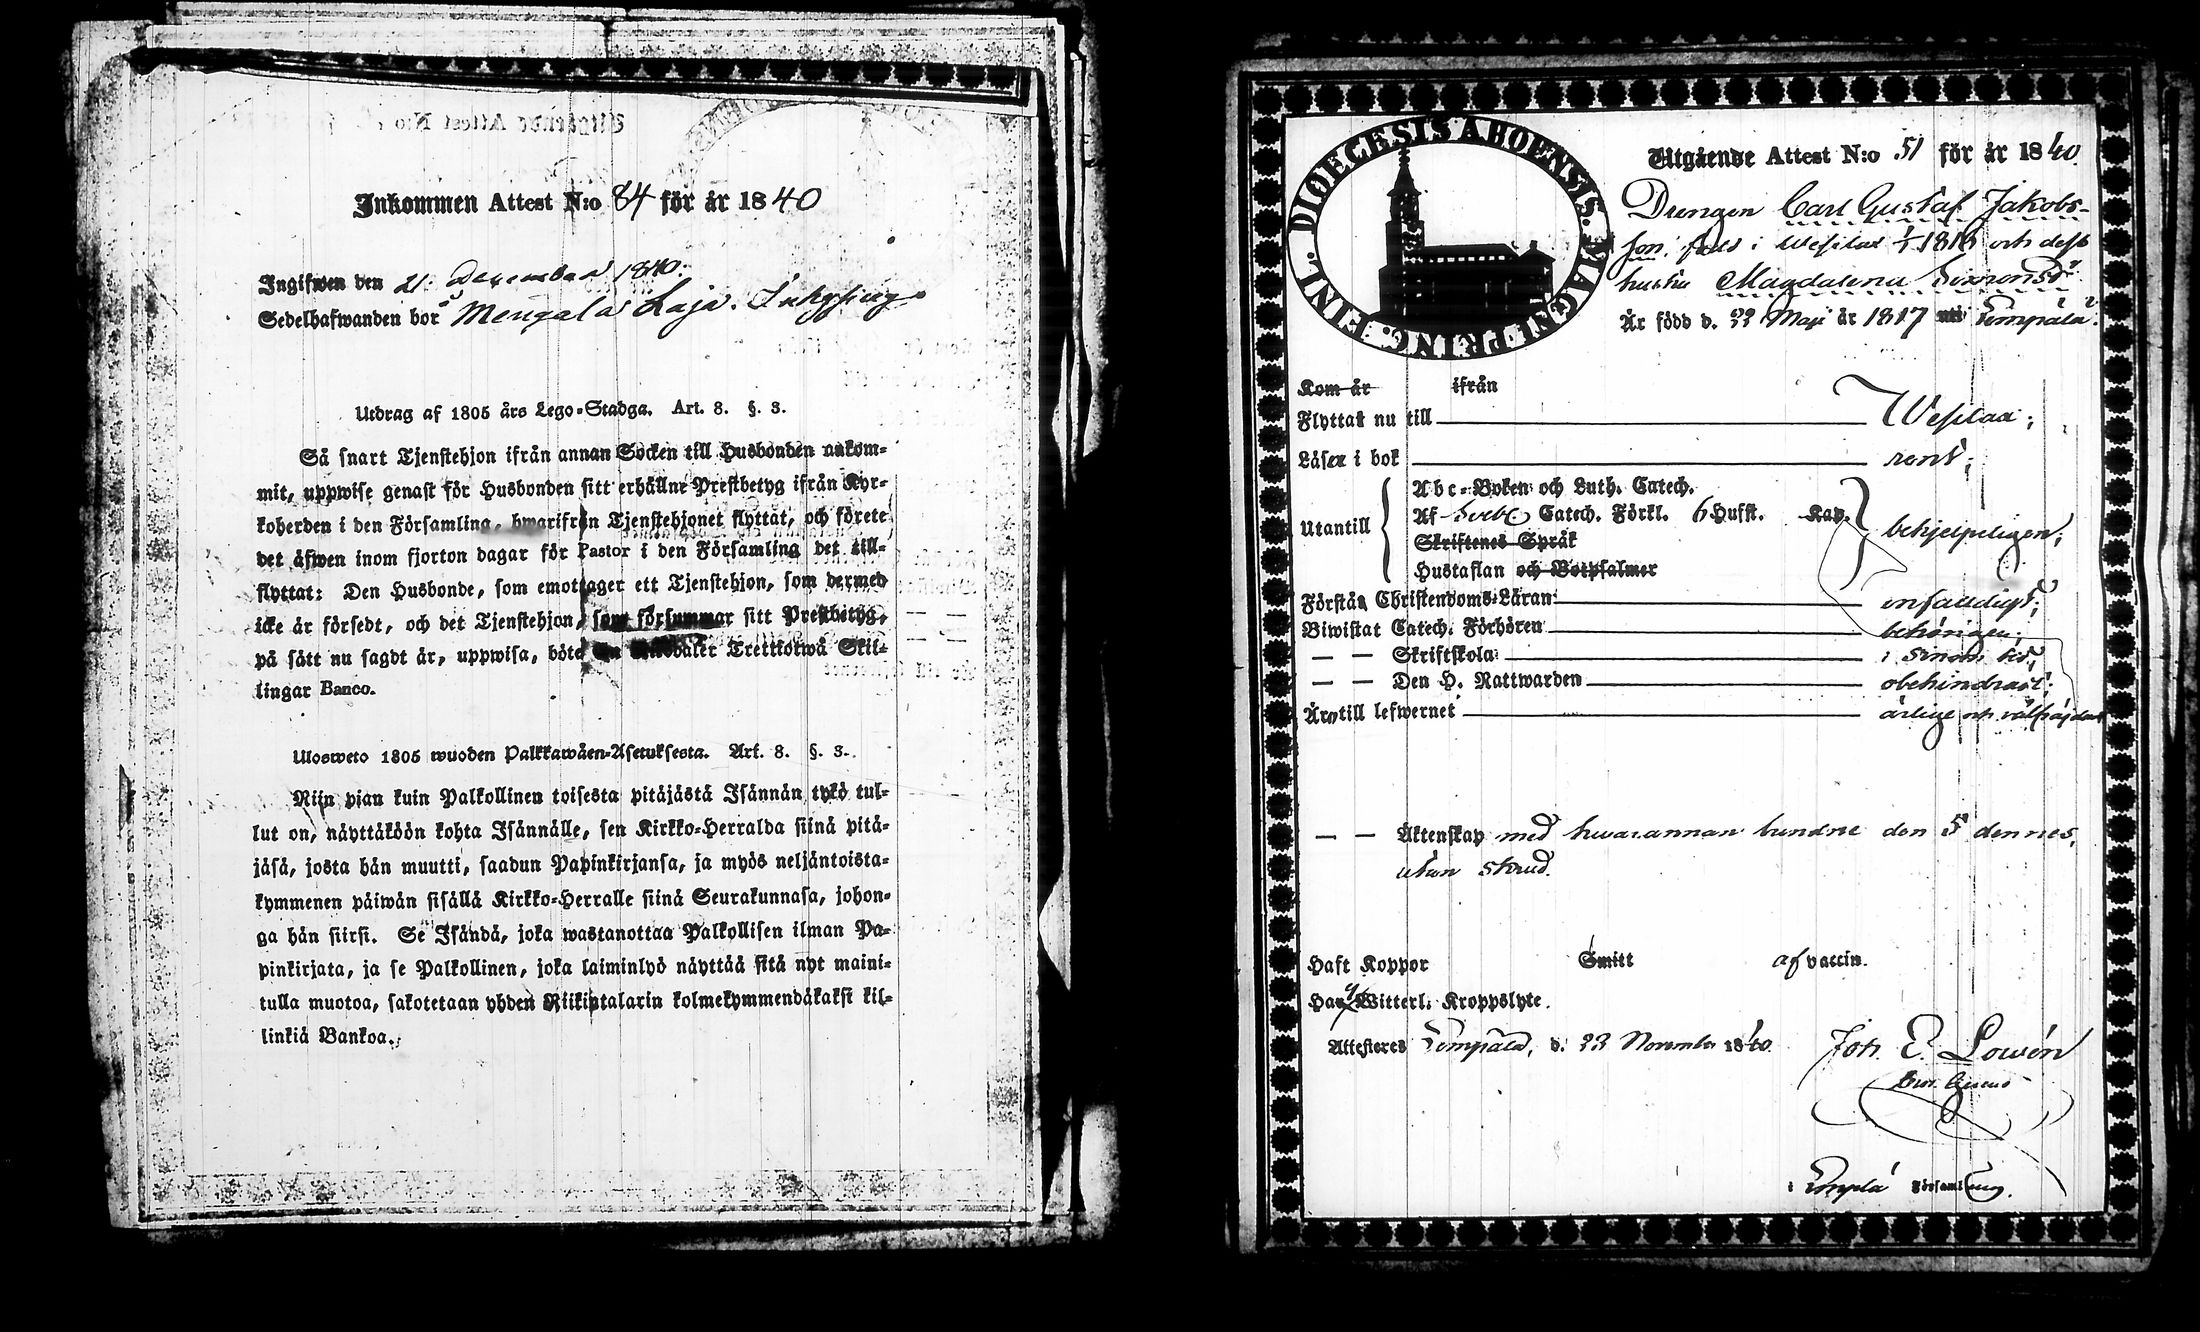 Inkommen Attest N:o 84 för år 1840
Ingifwen den 21 December 1840.
Sedelhafwanden bor å Mengala Laja.
Utdrag af 1805 års Lego-Stadga. Art. 8. §. 3.
Så snart Tjenstehjon ifrån annan Socken till Husbonden ankom-
mit, uppwise genast för Husbonden sitt erhållne Prestbetyg ifrån Kyr-
koherden i den Församling, hwarifrån Tjenstehjonet flyttat, och förete
det äfwen inom fjorton dagar för Pastor i den Församling det till-
flyttat: Den Husbonde, som emottager ett Tjenstehjon, som dermed
icke är försedt, och det Tjenstehjon, som försummar sitt Prestbetyg,
på sätt nu sagdt är, uppwisa, böte en Riksdaler Trettiotwå Skil-
lingar Banco.
Ulosweto 1805 wuoden Palkkawäen-Asetuksesta. Art. 8. §. 3.
Niin pian kuin Palkollinen toisesta pitäjästä Isännän tykö tul-
lut on, näyttäköön kohta Isännälle, sen Kirkko-Herralda siinä pitä-
jäsä, josta hän muutti, saadun Papinkirjansa, ja myös neljäntoista-
kymmenen päiwän sisällä Kirkko-Herralle siinä Seurakunnasa, johon-
ga hän siirsi. Se Isändä, joka wastanottaa Palkollisen ilman Pa-
pinkirjata, ja se Palkollinen, joka laiminlyö näyttää sitä nyt maini-
tulla muotoa, sakotetaan yhden Riikintalarin kolmekymmendäkaksi kil-
linkiä Bankoa.
DIOECESIS ABOENSIS. MAGNI PRINC. FINL.
Utgående Attest N:o 51 för år 1840.
Drengen Carl Gustaf Jakobs-
son, född i Wesilax 1/1 1816 och dess
hustru Magdalena Simonsdr
Är född d. 22 Maji år 1817 Lempälä.
Kom år ifrån
Flyttar nu till Wesilax;
Läser i bok rent;
Utantill
Abc-Boken och Luth. Catech.
Af Sveb. Catech. Förkl. 6 Hufst. Kap.
Skriftenes Språk
Hustaflan och Botpsalmer
behjelpeligen;
Förstår Christendoms-Läran enfaldigt;
Biwistat Catech. Förhören behörigen;
— — Skriftskola i sinom tid;
— — Den H. Nattwarden obehindradt;
Är till lefwernet ärlige och välfrejdade
— — Äktenskap med hwarannan bundne den 5 dennes,
utan skrud.
Haft Koppor Smitt af vaccin.
Har Witterl. Kroppslyte.
Attesteres Lempälä, d. 23 November 1840.
Joh. E. Lowén
i Lempälä Församling.